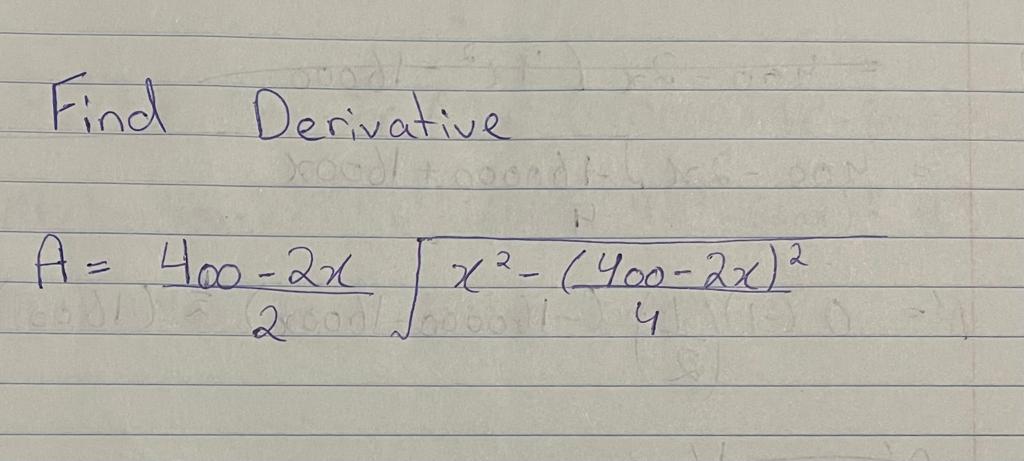 Find Derivative
A = (400 - 2x)/2 √(x² - (400 - 2x)²/4)